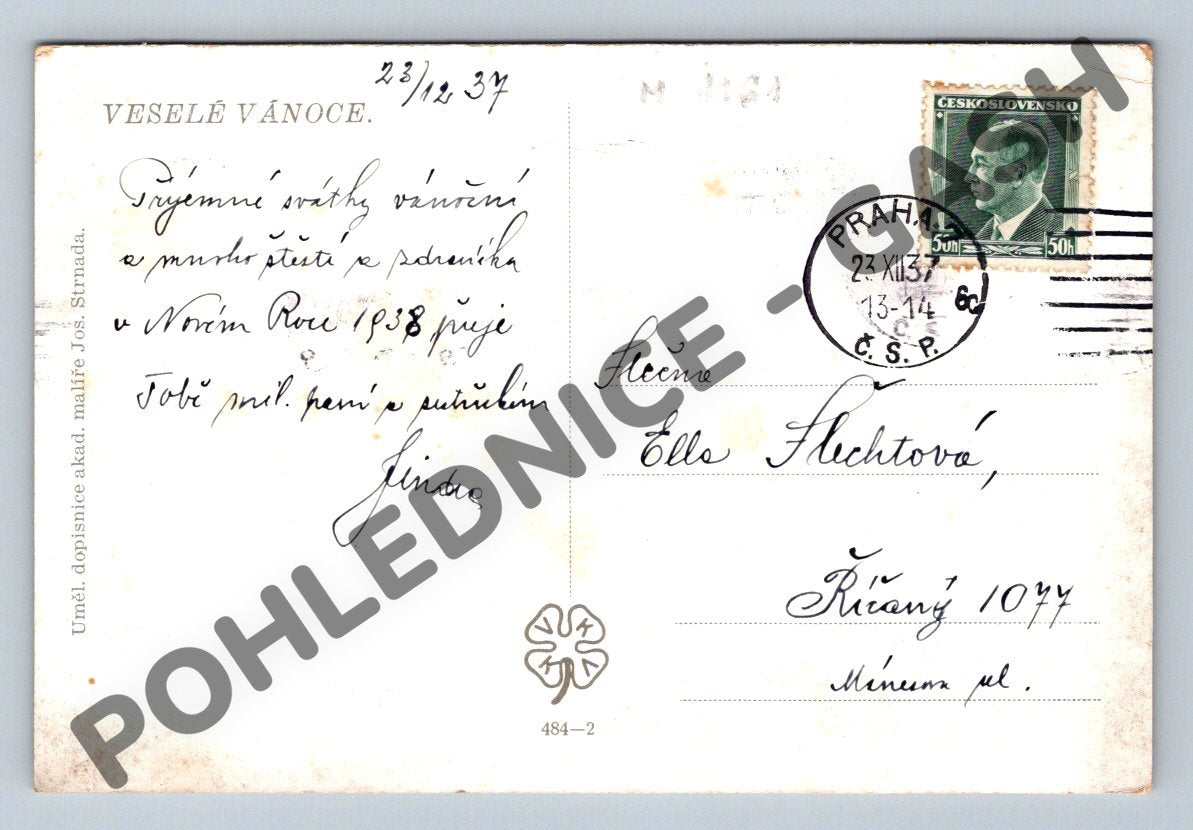 VESELÉ VÁNOCE.
23/12 37
Příjemné svátky vánoční
a mnoho štěstí a zdravíčka
v Novém Roce 1938 přeje
Tobě mil. paní a
Jindra
Uměl. dopisnice akad. malíře Jos. Strnada.
VKKV
484—2
ČESKOSLOVENSKO
50h 50h
PRAHA
23 XII 37
13-14
6c
Č. S. P.
Slečna
Ella Flechtová,
Říčany 1077
Mánesova ul.
POHLEDNICE - GASH